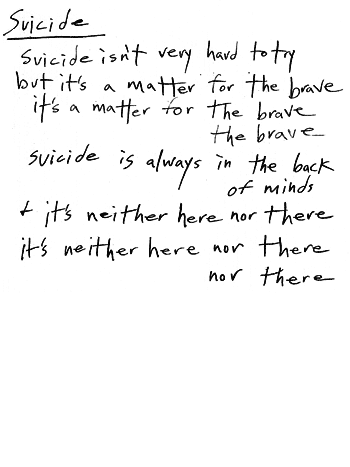 Suicide
Suicide isn't very hard to try
but it's a matter for the brave
it's a matter for the brave
the brave
suicide is always in the back
of minds
+ it's neither here nor there
it's neither here nor there
nor there